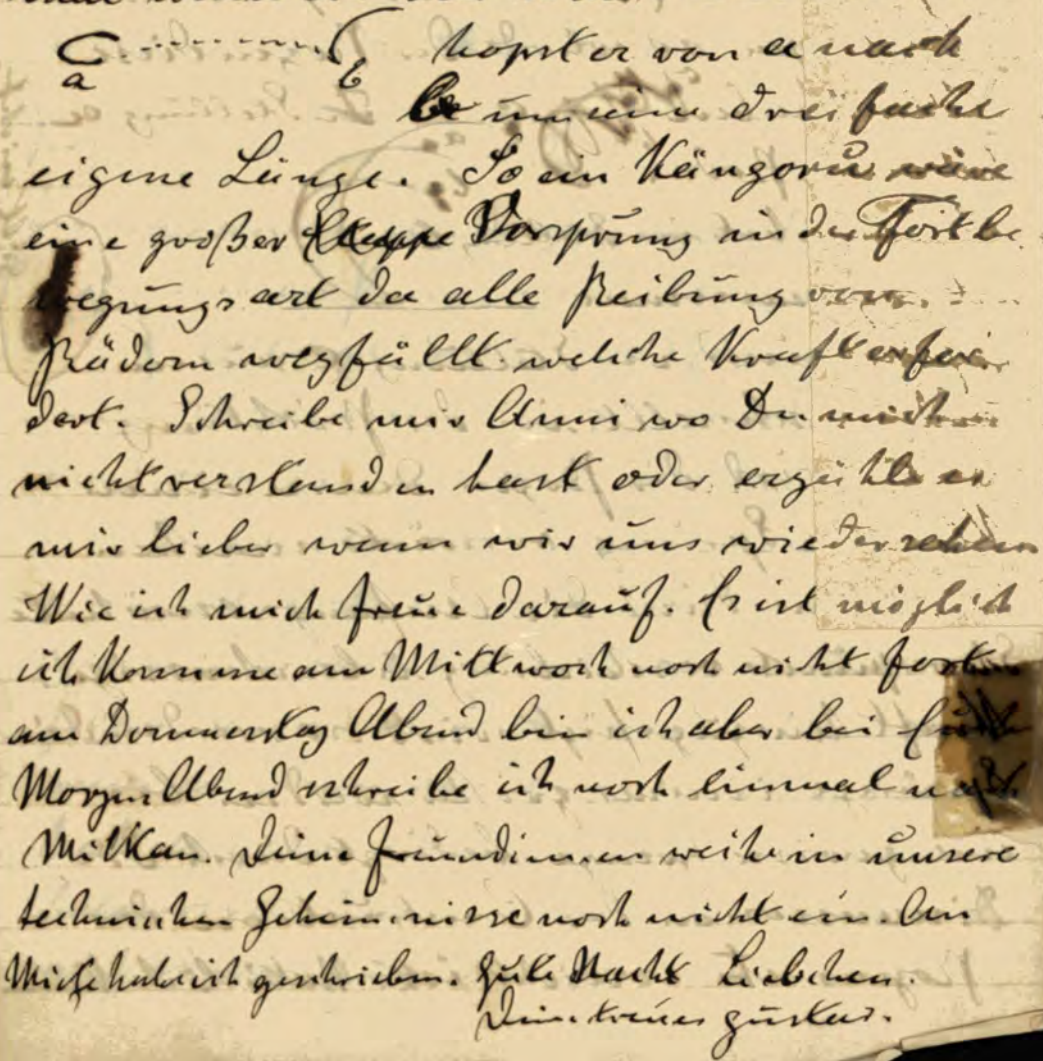 hopst er von a nach
a b
b um seine dreifache
eigene Länge. So ein Kängoru wäre
eine großer Vorsprung in der Fortbe
wegungsart da alle Reibung von
Rädern wegfällt welche Kraft erfor
dert. Schreibe mir Anni wo Du mich
nicht verstanden hast oder erzähle es
mir lieber wenn wir uns wiedersehen
Wie ich mich freue darauf. Es ist möglich
ich komme am Mittwoch noch nicht fort
am Donnerstag Abend bin ich aber bei Euch
Morgen Abend schreibe ich noch einmal nach
Milkau. Deine Freundinnen weihe in unsere
technischen Geheimnisse noch nicht ein. An
habe ich geschrieben. Gute Nacht Liebchen.
Dein treuer Gustav.